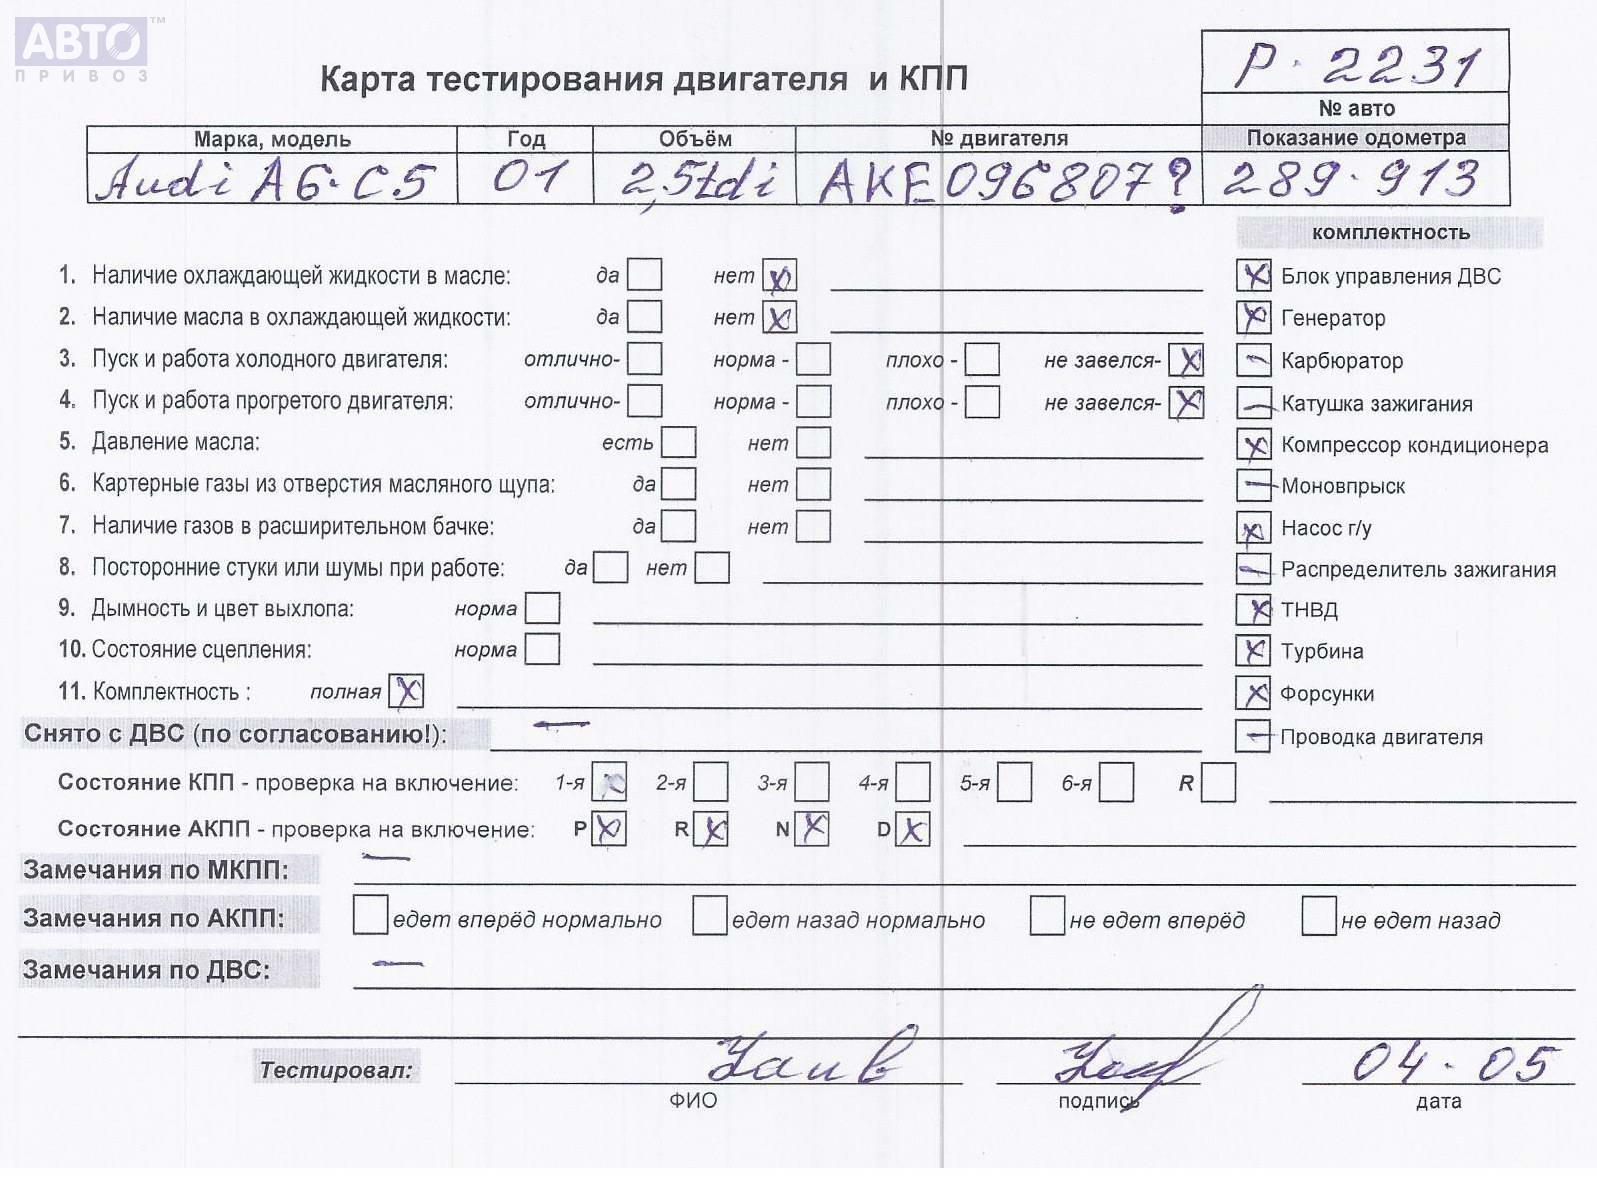 АВТО™
ПРИВОЗ
Р-2231
Карта тестирования двигателя и КПП
№ авто
Марка, модель Год Объём № двигателя Показание одометра
Audi A6-C5 01 2,5tdi AKE096807? 289-913
комплектность
1. Наличие охлаждающей жидкости в масле: да нет X
X Блок управления ДВС
2. Наличие масла в охлаждающей жидкости: да нет X
X Генератор
3. Пуск и работа холодного двигателя: отлично- норма - плохо - не завелся- X
– Карбюратор
4. Пуск и работа прогретого двигателя: отлично- норма - плохо - не завелся- X
– Катушка зажигания
5. Давление масла: есть нет
X Компрессор кондиционера
6. Картерные газы из отверстия масляного щупа: да нет
– Моновпрыск
7. Наличие газов в расширительном бачке: да нет
X Насос г/у
8. Посторонние стуки или шумы при работе: да нет
– Распределитель зажигания
9. Дымность и цвет выхлопа: норма
X ТНВД
10. Состояние сцепления: норма
X Турбина
11. Комплектность : полная X
X Форсунки
Снято с ДВС (по согласованию!): —
– Проводка двигателя
Состояние КПП - проверка на включение: 1-я 2-я 3-я 4-я 5-я 6-я R
Состояние АКПП - проверка на включение: P X R X N X D X
Замечания по МКПП: —
Замечания по АКПП: едет вперёд нормально едет назад нормально не едет вперёд не едет назад
Замечания по ДВС: —
Тестировал: 04-05
ФИО подпись дата